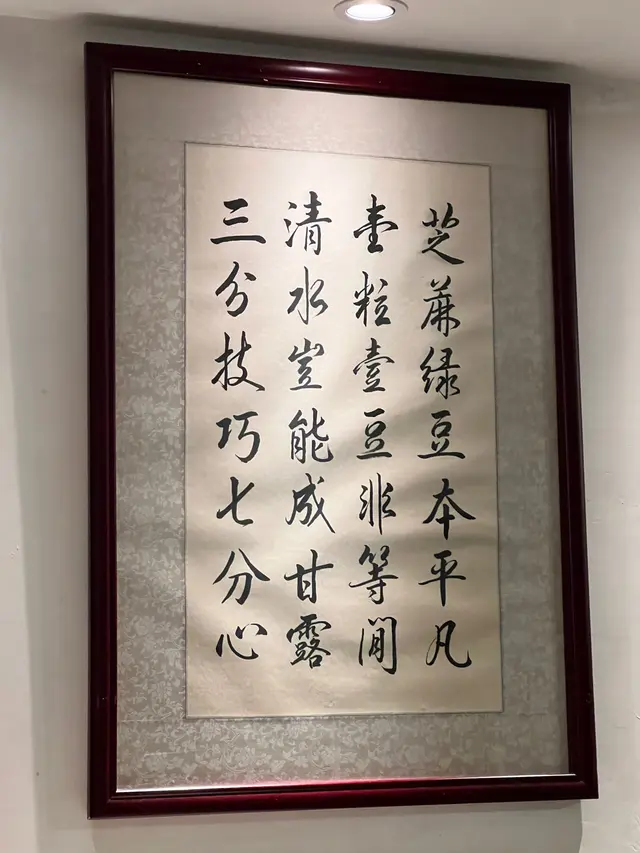 芝蔴绿豆本平凡
壹粒壹豆非等閒
清水豈能成甘露
三分技巧七分心